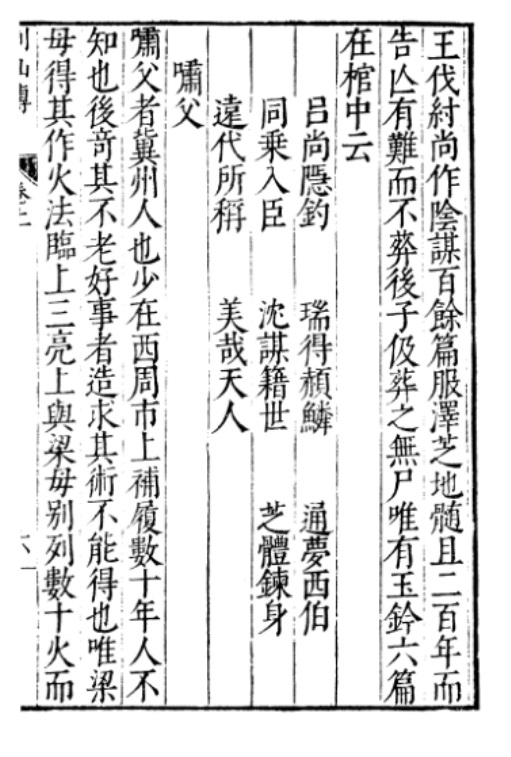 王伐紂尚作陰謀百餘篇服澤芝地髓且二百年而
告亾有難而不葬後子伋葬之無尸唯有玉鈐六篇
在棺中云
呂尚隱釣　瑞得赬鱗　通夢西伯
同乗入臣　沈謀籍世　芝體鍊身
遠代所稱　美哉天人
嘯父
嘯父者冀州人也少在西周市上補履數十年人不
知也後竒其不老好事者造求其術不能得也唯梁
毋得其作火法臨上三亮上與梁毋别列數十火而